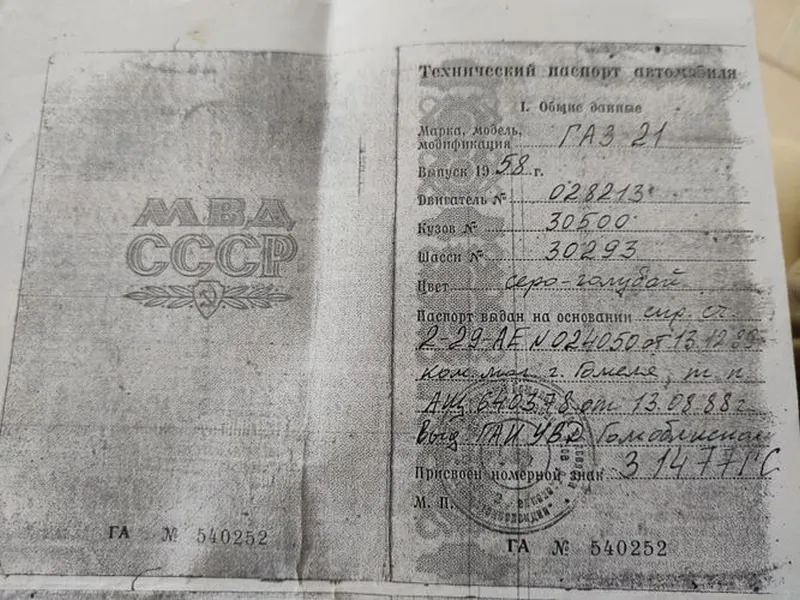 МВД
СССР
ГА № 540252
Технический паспорт автомобиля
I. Общие данные
Марка, модель,
модификация ГАЗ 21
Выпуск 1958 г.
Двигатель № 028213
Кузов № 30500
Шасси № 30293
Цвет серо-голубой
Паспорт выдан на основании спр. сч.
2-29-АЕ N 024050 от 13.12.
ком. маг г. Гомеля, т. п.
АЩ 640378 от 13.08.88г
Выд ГАИ УВД
Присвоен номерной знак З 1477 ГС
М. П.
ГА № 540252